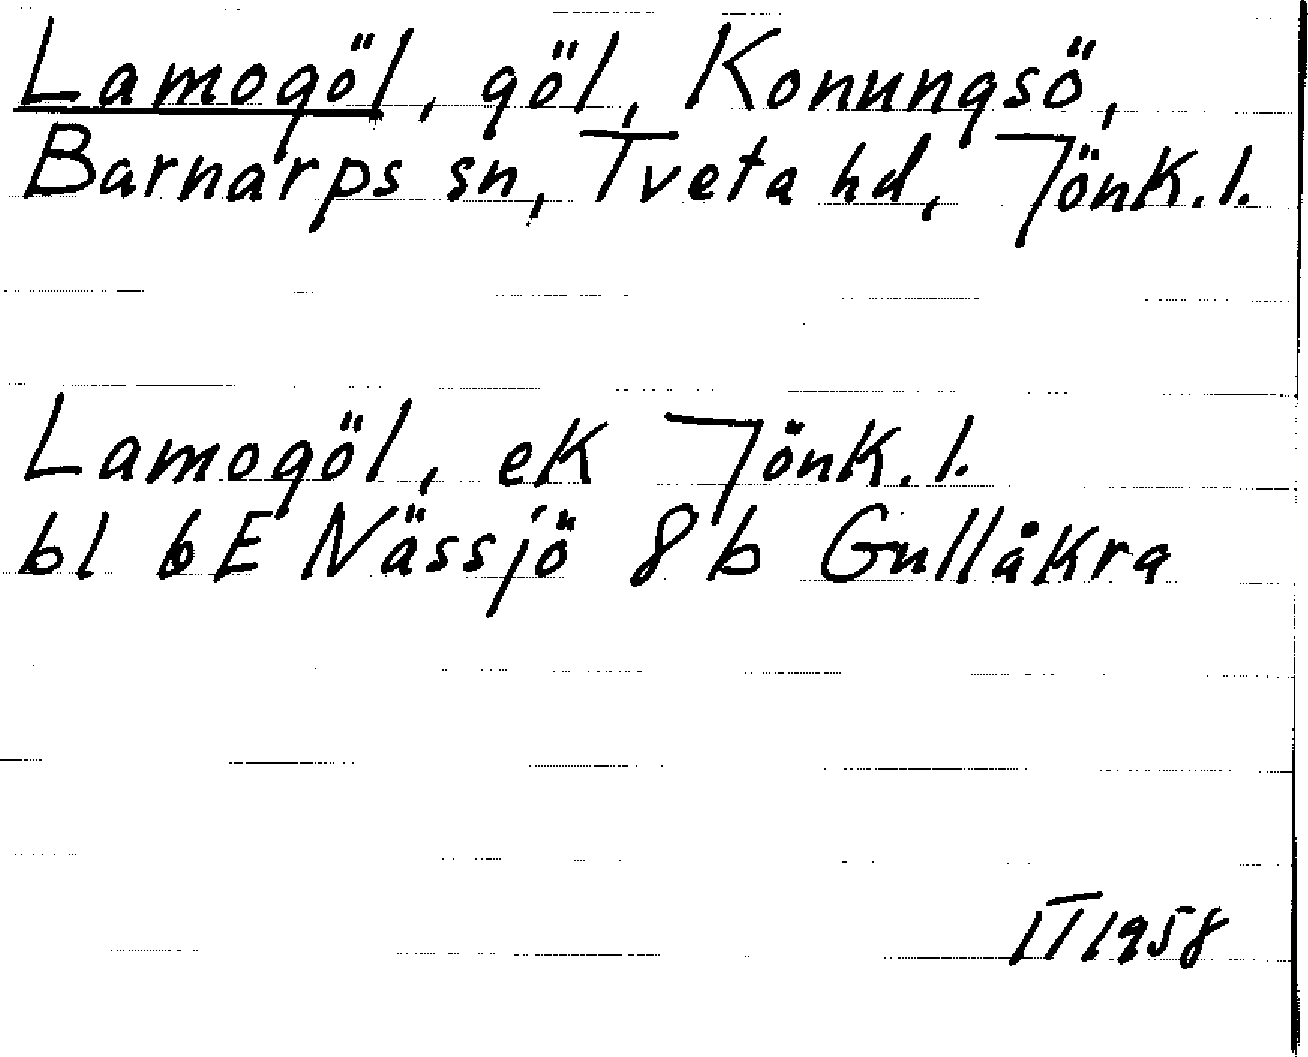 Lamogöl, göl, Konungsö,
Barnarps sn, Tveta hd, Jönk.l.
Lamogöl, ek Jönk.l.
bl 6E Nässjö 8b Gullåkra
IT 1958